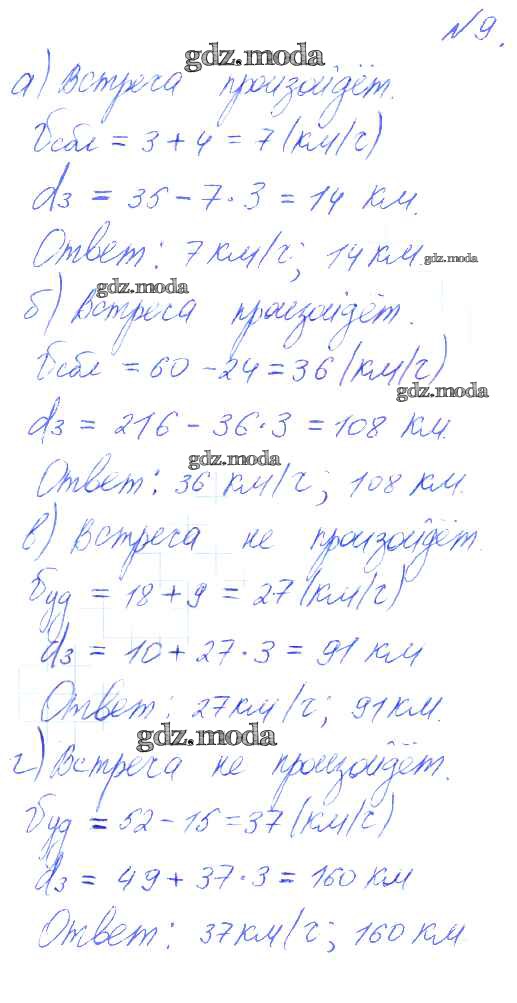 №9.
gdz.moda
а) Встреча произойдёт.
Vсбл = 3 + 4 = 7 (км/ч)
d₃ = 35 − 7 · 3 = 14 км.
Ответ: 7 км/ч; 14 км.
gdz.moda
gdz.moda
б) Встреча произойдёт.
Vсбл = 60 − 24 = 36 (км/ч)
gdz.moda
d₃ = 216 − 36 · 3 = 108 км.
gdz.moda
Ответ: 36 км/ч; 108 км.
в) Встреча не произойдёт.
Vуд = 18 + 9 = 27 (км/ч)
d₃ = 10 + 27 · 3 = 91 км
Ответ: 27 км/ч; 91 км.
gdz.moda
г) Встреча не произойдёт.
Vуд = 52 − 15 = 37 (км/ч)
d₃ = 49 + 37 · 3 = 160 км
Ответ: 37 км/ч; 160 км